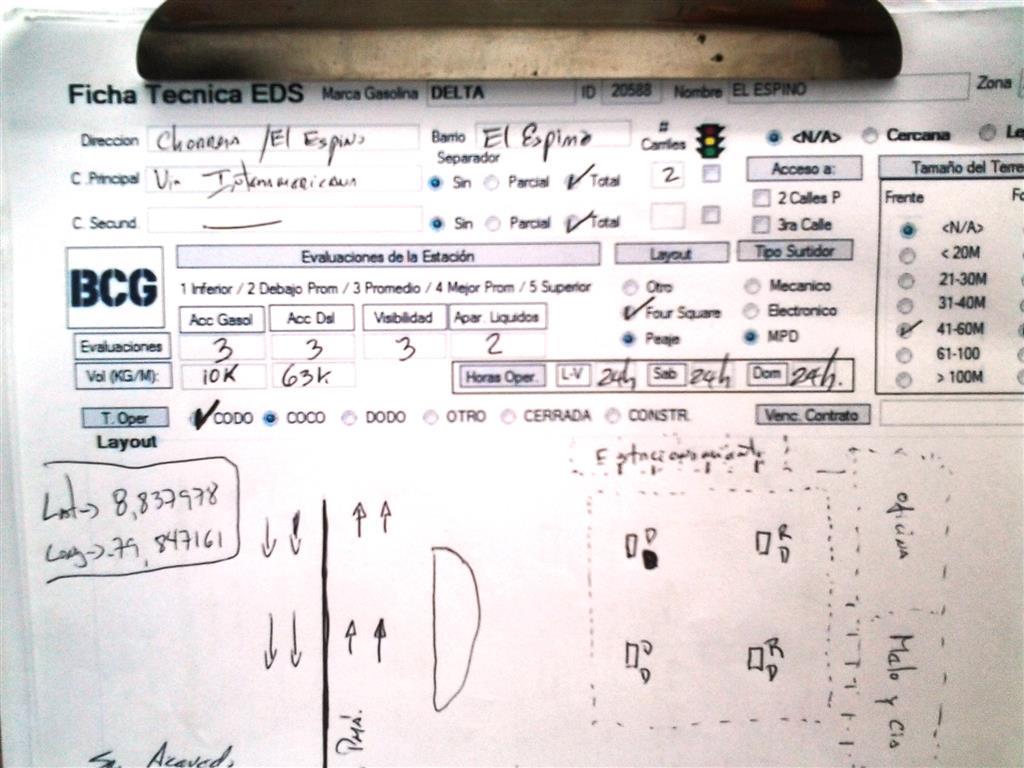 Ficha Tecnica EDS Marca Gasolina DELTA ID 20588 Nombre EL ESPINO Zona
Direccion Chorrera /El Espino Barrio El Espino # Carriles <N/A> Cercana Le
Separador
C .Principal Via Interamericana Sin Parcial Total 2 Acceso a: Tamaño del Terre
2 Calles P Frente Fo
C. Secund. Sin Parcial Total 3ra Calle <N/A>
BCG Evaluaciones de la Estación Layout Tipo Surtidor < 20M
1 Inferior / 2 Debajo Prom / 3 Promedio / 4 Mejor Prom / 5 Superior Otro Mecanico 21-30M
Acc Gasol Acc Dsl Visibilidad Apar. Liquidos Four Square Electronico 31-40M
Evaluaciones 3 3 3 2 Peaje MPD 41-60M
61-100
Vol (KG/M): 10K 63K Horas Oper. L-V 24h Sab 24h Dom 24h. > 100M
T. Oper CODO COCO DODO OTRO CERRADA CONSTR. Venc. Contrato
Layout
Estacionamiento
Lat-> 8,837978
Long->-79,847161
oficina
D R
D D
D R
D D
Malo y Cia
Pmá.
Acevedo